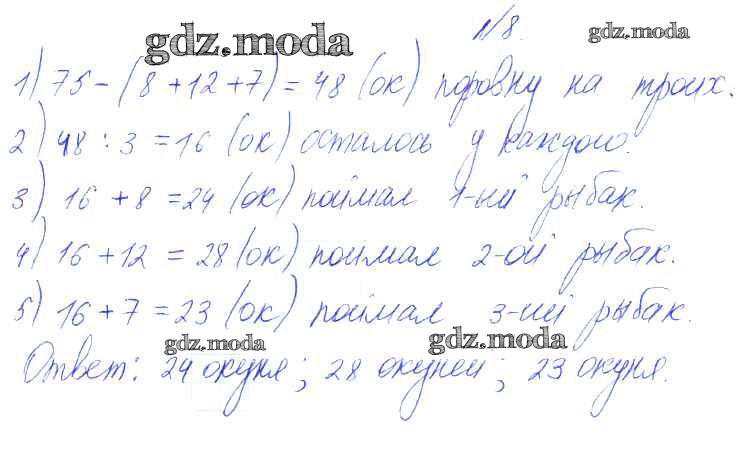 gdz.moda
№8.
gdz.moda
1) 75 - (8 + 12 + 7) = 48 (ок) поровну на троих.
2) 48 : 3 = 16 (ок) осталось у каждого.
3) 16 + 8 = 24 (ок) поймал 1-ый рыбак.
4) 16 + 12 = 28 (ок) поймал 2-ой рыбак.
5) 16 + 7 = 23 (ок) поймал 3-ий рыбак.
gdz.moda
gdz.moda
Ответ: 24 окуня; 28 окуней; 23 окуня.
gdz.moda